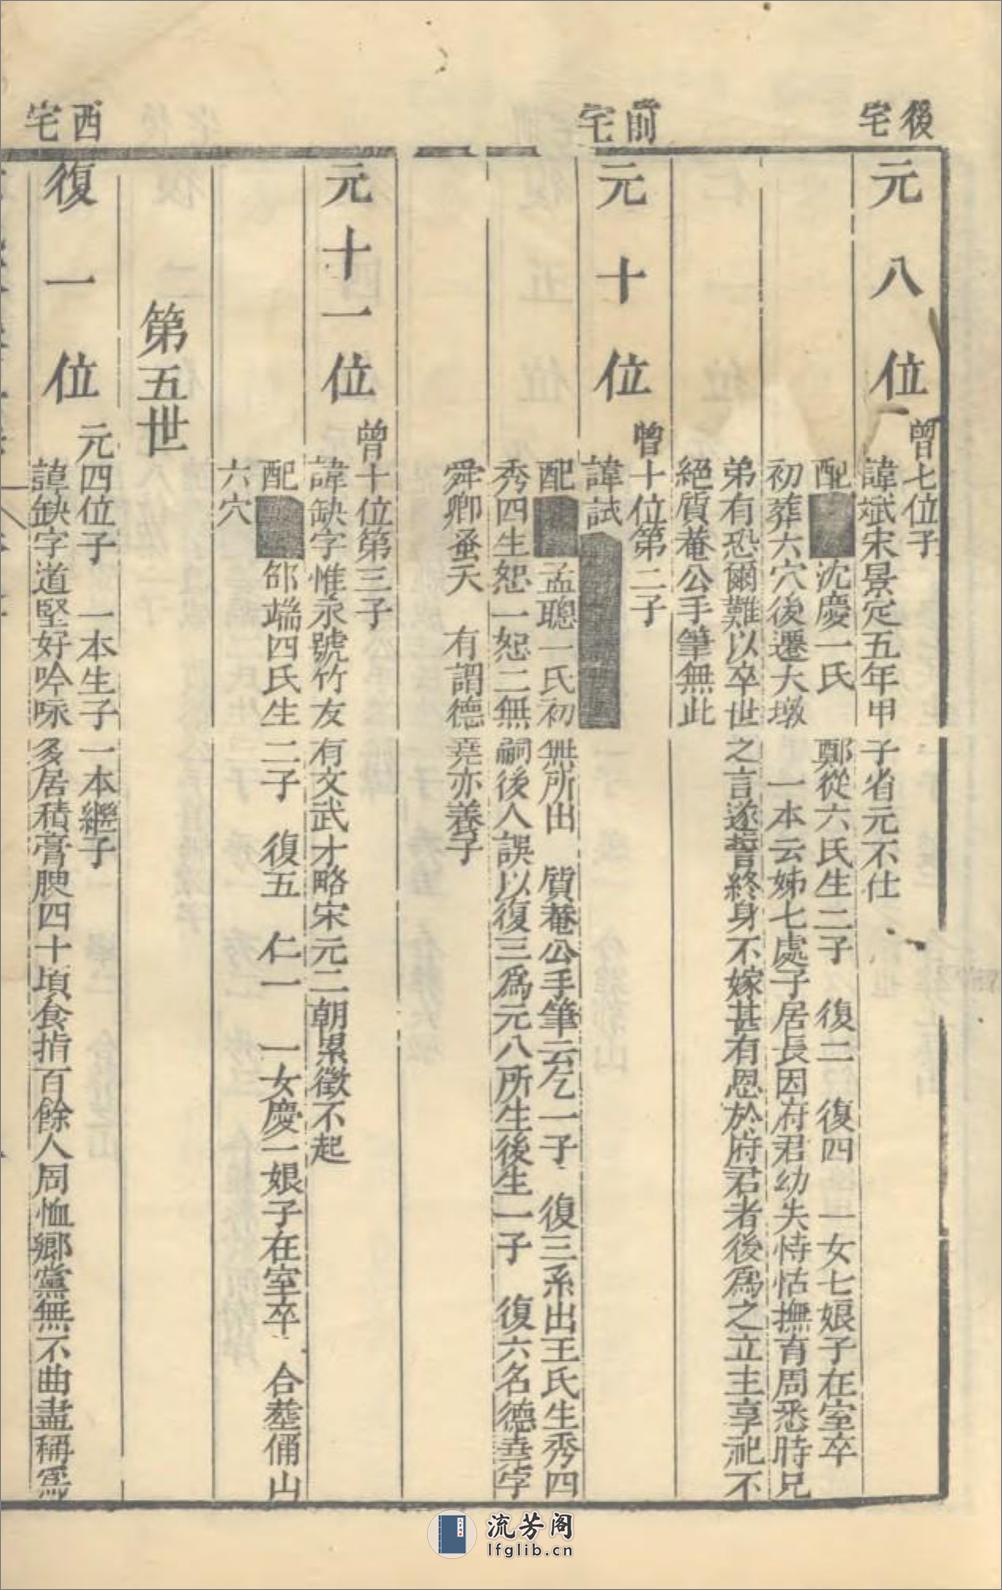 後宅
元八位
曾七位子
諱斌宋景定五年甲子省元不仕
配 沈慶一氏 鄭從六氏生二子 復二 復四 一女七娘子在室卒
初葬六穴後遷大墩 一本云姊七處子居長因府君幼失恃怙撫育周悉時兄
弟有恐爾難以卒世之言遂誓終身不嫁甚有恩於府君者後爲之立主享祀不
絕質菴公手筆無此
前宅
元十位
曾十位第二子
諱試
配 孟聰一氏初無所出 質菴公手筆云乞一子 復三系出王氏生秀四
秀四生恕一恕二無嗣後人誤以復三爲元八所生後生一子 復六名德堯字
舜卿蚤夭 有謂德堯亦養子
元十一位
曾十位第三子
諱缺字惟永號竹友有文武才略宋元二朝累徵不起
配 邰端四氏生二子 復五 仁一 一女慶一娘子在室卒 合塟俑山
六穴
第五世
西宅
復一位
元四位子 一本生子一本繼子
諱缺字道堅好吟咏多居積膏腴四十頃食指百餘人周恤鄉黨無不曲盡稱爲
流芳阁
lfglib.cn